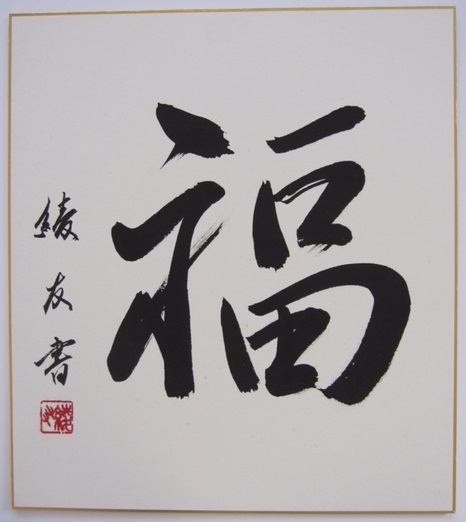 福
綾友書